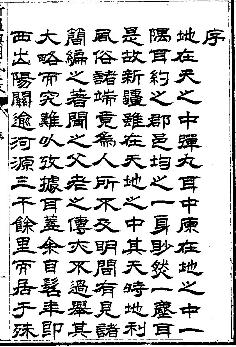 序
地在天之中彈丸耳中原在地之中一
隅耳約之郡邑均之一身眇然一塵耳
是故新疆雖在天地之中其天時地利
風俗諸端竟為人所不及明間有見諸
簡編之著聞之父老之傳大不過舉其
大略而究難以攷據耳蓋余自髫年即
西出陽關逾河源三千餘里而居于殊